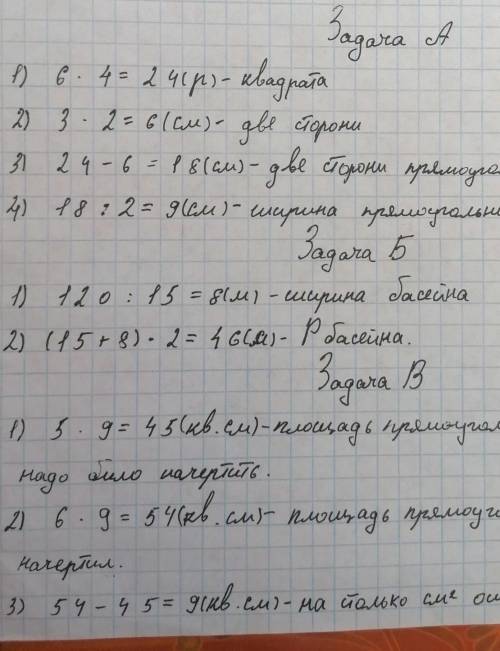 Задача А
1) 6 · 4 = 24(р) - квадрата
2) 3 · 2 = 6(см) - две сторони
3) 24 - 6 = 18(см) - две сторони прямоугол
4) 18 : 2 = 9(см) - ширина прямоугольни
Задача Б
1) 120 : 15 = 8(м) - ширина басейна
2) (15 + 8) · 2 = 46(м) - Р басейна.
Задача В
1) 5 · 9 = 45(кв.см) - площадь прямоугол
надо било начертить.
2) 6 · 9 = 54(кв.см) - площадь прямоуго
начертил.
3) 54 - 45 = 9(кв.см) - на столько см² ош